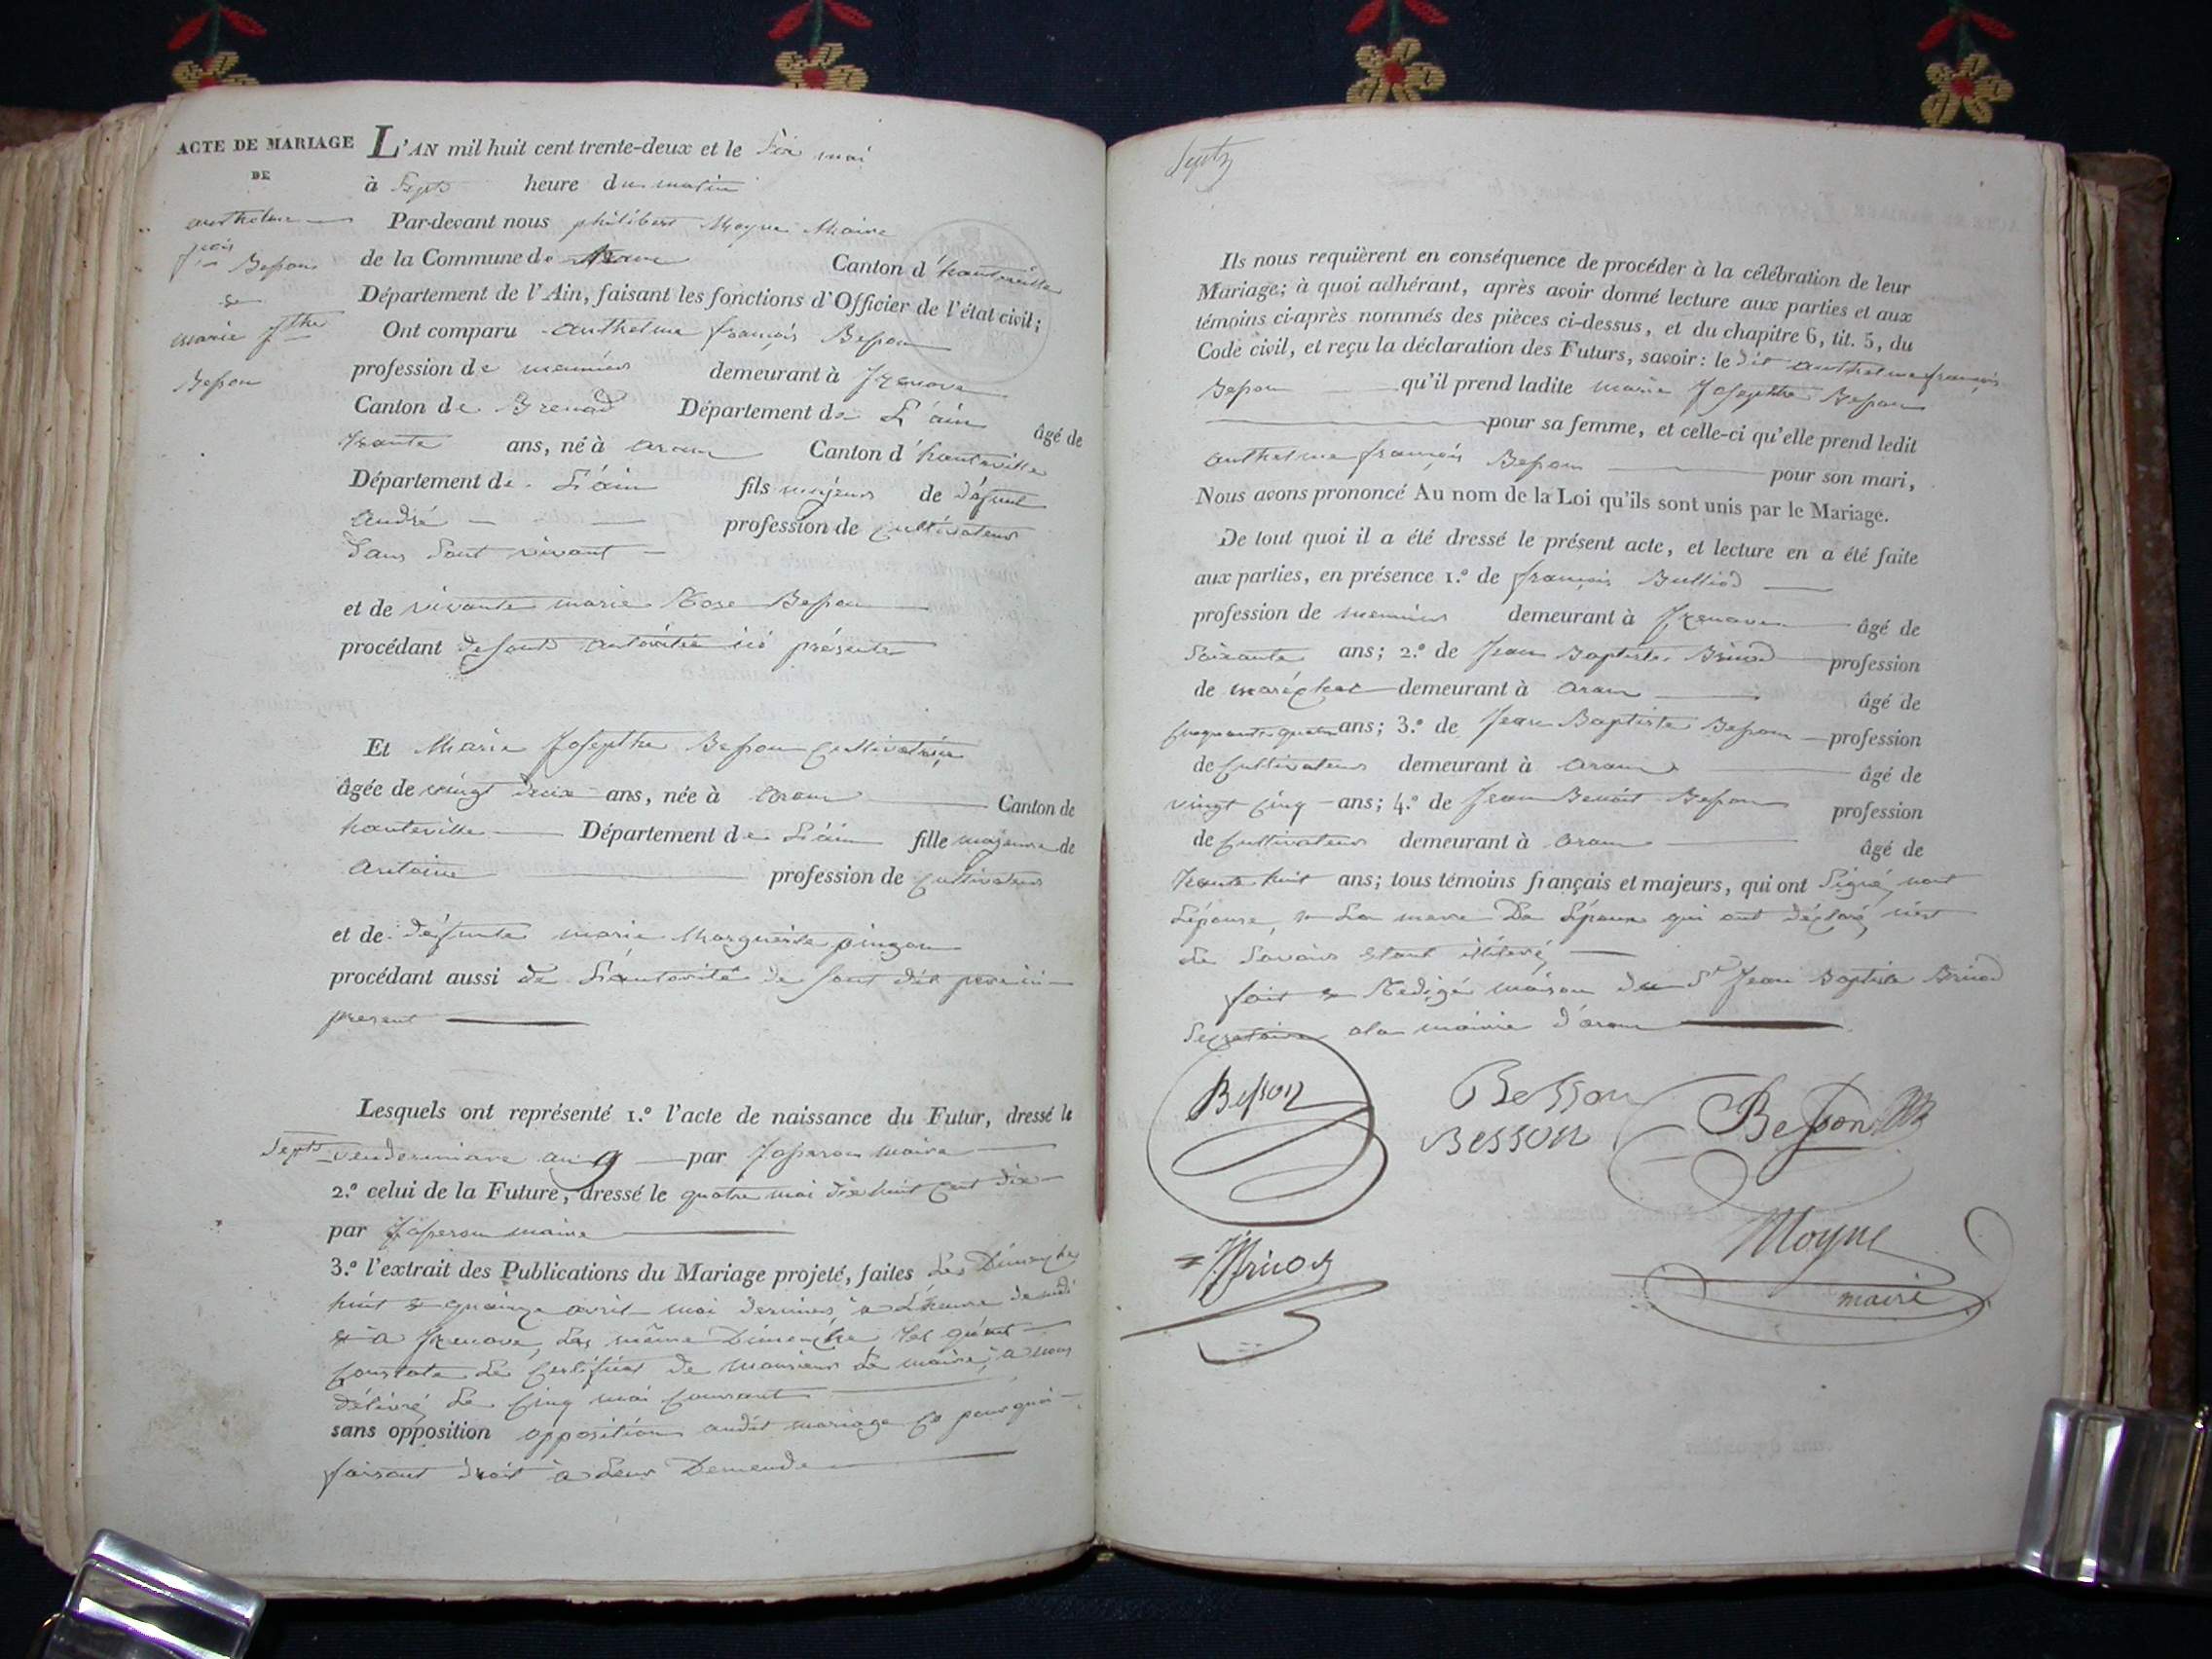 ACTE DE MARIAGE
DE
anthelme
fçois
Besson
&
marie jthe
Besson
L'AN mil huit cent trente-deux et le six mai
à Sept heure du matin
Par-devant nous philibert Moyne Maire
de la Commune de Aranc Canton d'hauteville
Département de l'Ain, faisant les fonctions d'Officier de l'état civil;
Ont comparu anthelme françois Besson
profession de meunier demeurant à
Canton de Brenod Département de L'ain âgé de
trante ans, né à aranc Canton d'hauteville
Département de L'ain fils majeur de défunt
andré profession de Cultivateur
Dans Sont vivant
et de vivante marie Rose Besson
procédant de sont autoritée ici présente
Et Marie Josepthe Besson Cultivatrice
âgée de vingt deux ans, née à aranc Canton de
hauteville Département de L'ain fille majeure de
antoine profession de Cultivateur
et de défunte marie Marguerite pingon
procédant aussi de L'autorité de sont dit pere ici
present
Lesquels ont représenté 1.º l'acte de naissance du Futur, dressé le
Sept vendemiaire an 9 par Josseron maire
2.º celui de la Future, dressé le quatre mai dix huit cent dix
par Josseron maire
3.º l'extrait des Publications du Mariage projeté, faites Les Dimenche
huit & quainze avril mai dernier à L'heure de midi
& a Les même Dimenche tel quant
Constate Le Certificat de Monsieur Le maire, a nous
délivré Le Cinq mai Courant
sans opposition opposition audit mariage Ce pourquoi
faisant droit à Leur Demende
Septz
Ils nous requièrent en conséquence de procéder à la célébration de leur
Mariage; à quoi adhérant, après avoir donné lecture aux parties et aux
témoins ci-après nommés des pièces ci-dessus, et du chapitre 6, tit. 5, du
Code civil, et reçu la déclaration des Futurs, savoir: le dit anthelme françois
Besson qu'il prend ladite marie Josepthe Besson
pour sa femme, et celle-ci qu'elle prend ledit
anthelme françois Besson pour son mari,
Nous avons prononcé Au nom de la Loi qu'ils sont unis par le Mariage.
De tout quoi il a été dressé le présent acte, et lecture en a été faite
aux parties, en présence 1.º de françois Bulliod
profession de meunier demeurant à âgé de
Soixante ans; 2.º de Jean Baptiste Brinod profession
de maréchal demeurant à aranc âgé de
Cinquante quatre ans; 3.º de Jean Baptiste Besson profession
de Cultivateur demeurant à aranc âgé de
vingt Cinq ans; 4.º de Jean Benoit Besson profession
de Cultivateur demeurant à aranc âgé de
trante huit ans; tous témoins français et majeurs, qui ont Signé, nont
L'épouse, & La mere De L'époux qui ont déclaré, n'est
Le Savoir Etant illiteré
fait & Redigé maison du Sr Jean Baptiste Brinod
Secretaire a la mairie d'aranc
Besson
Besson
Besson
Besson
Brinod
Moyne
maire